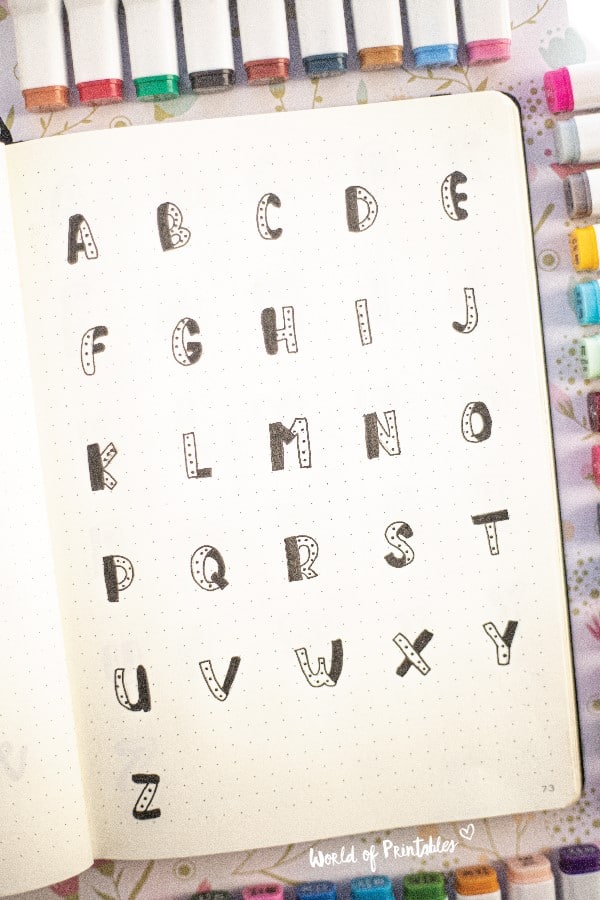 A B C D E
F G H I J
K L M N O
P Q R S T
U V W X Y
Z
73
World of Printables